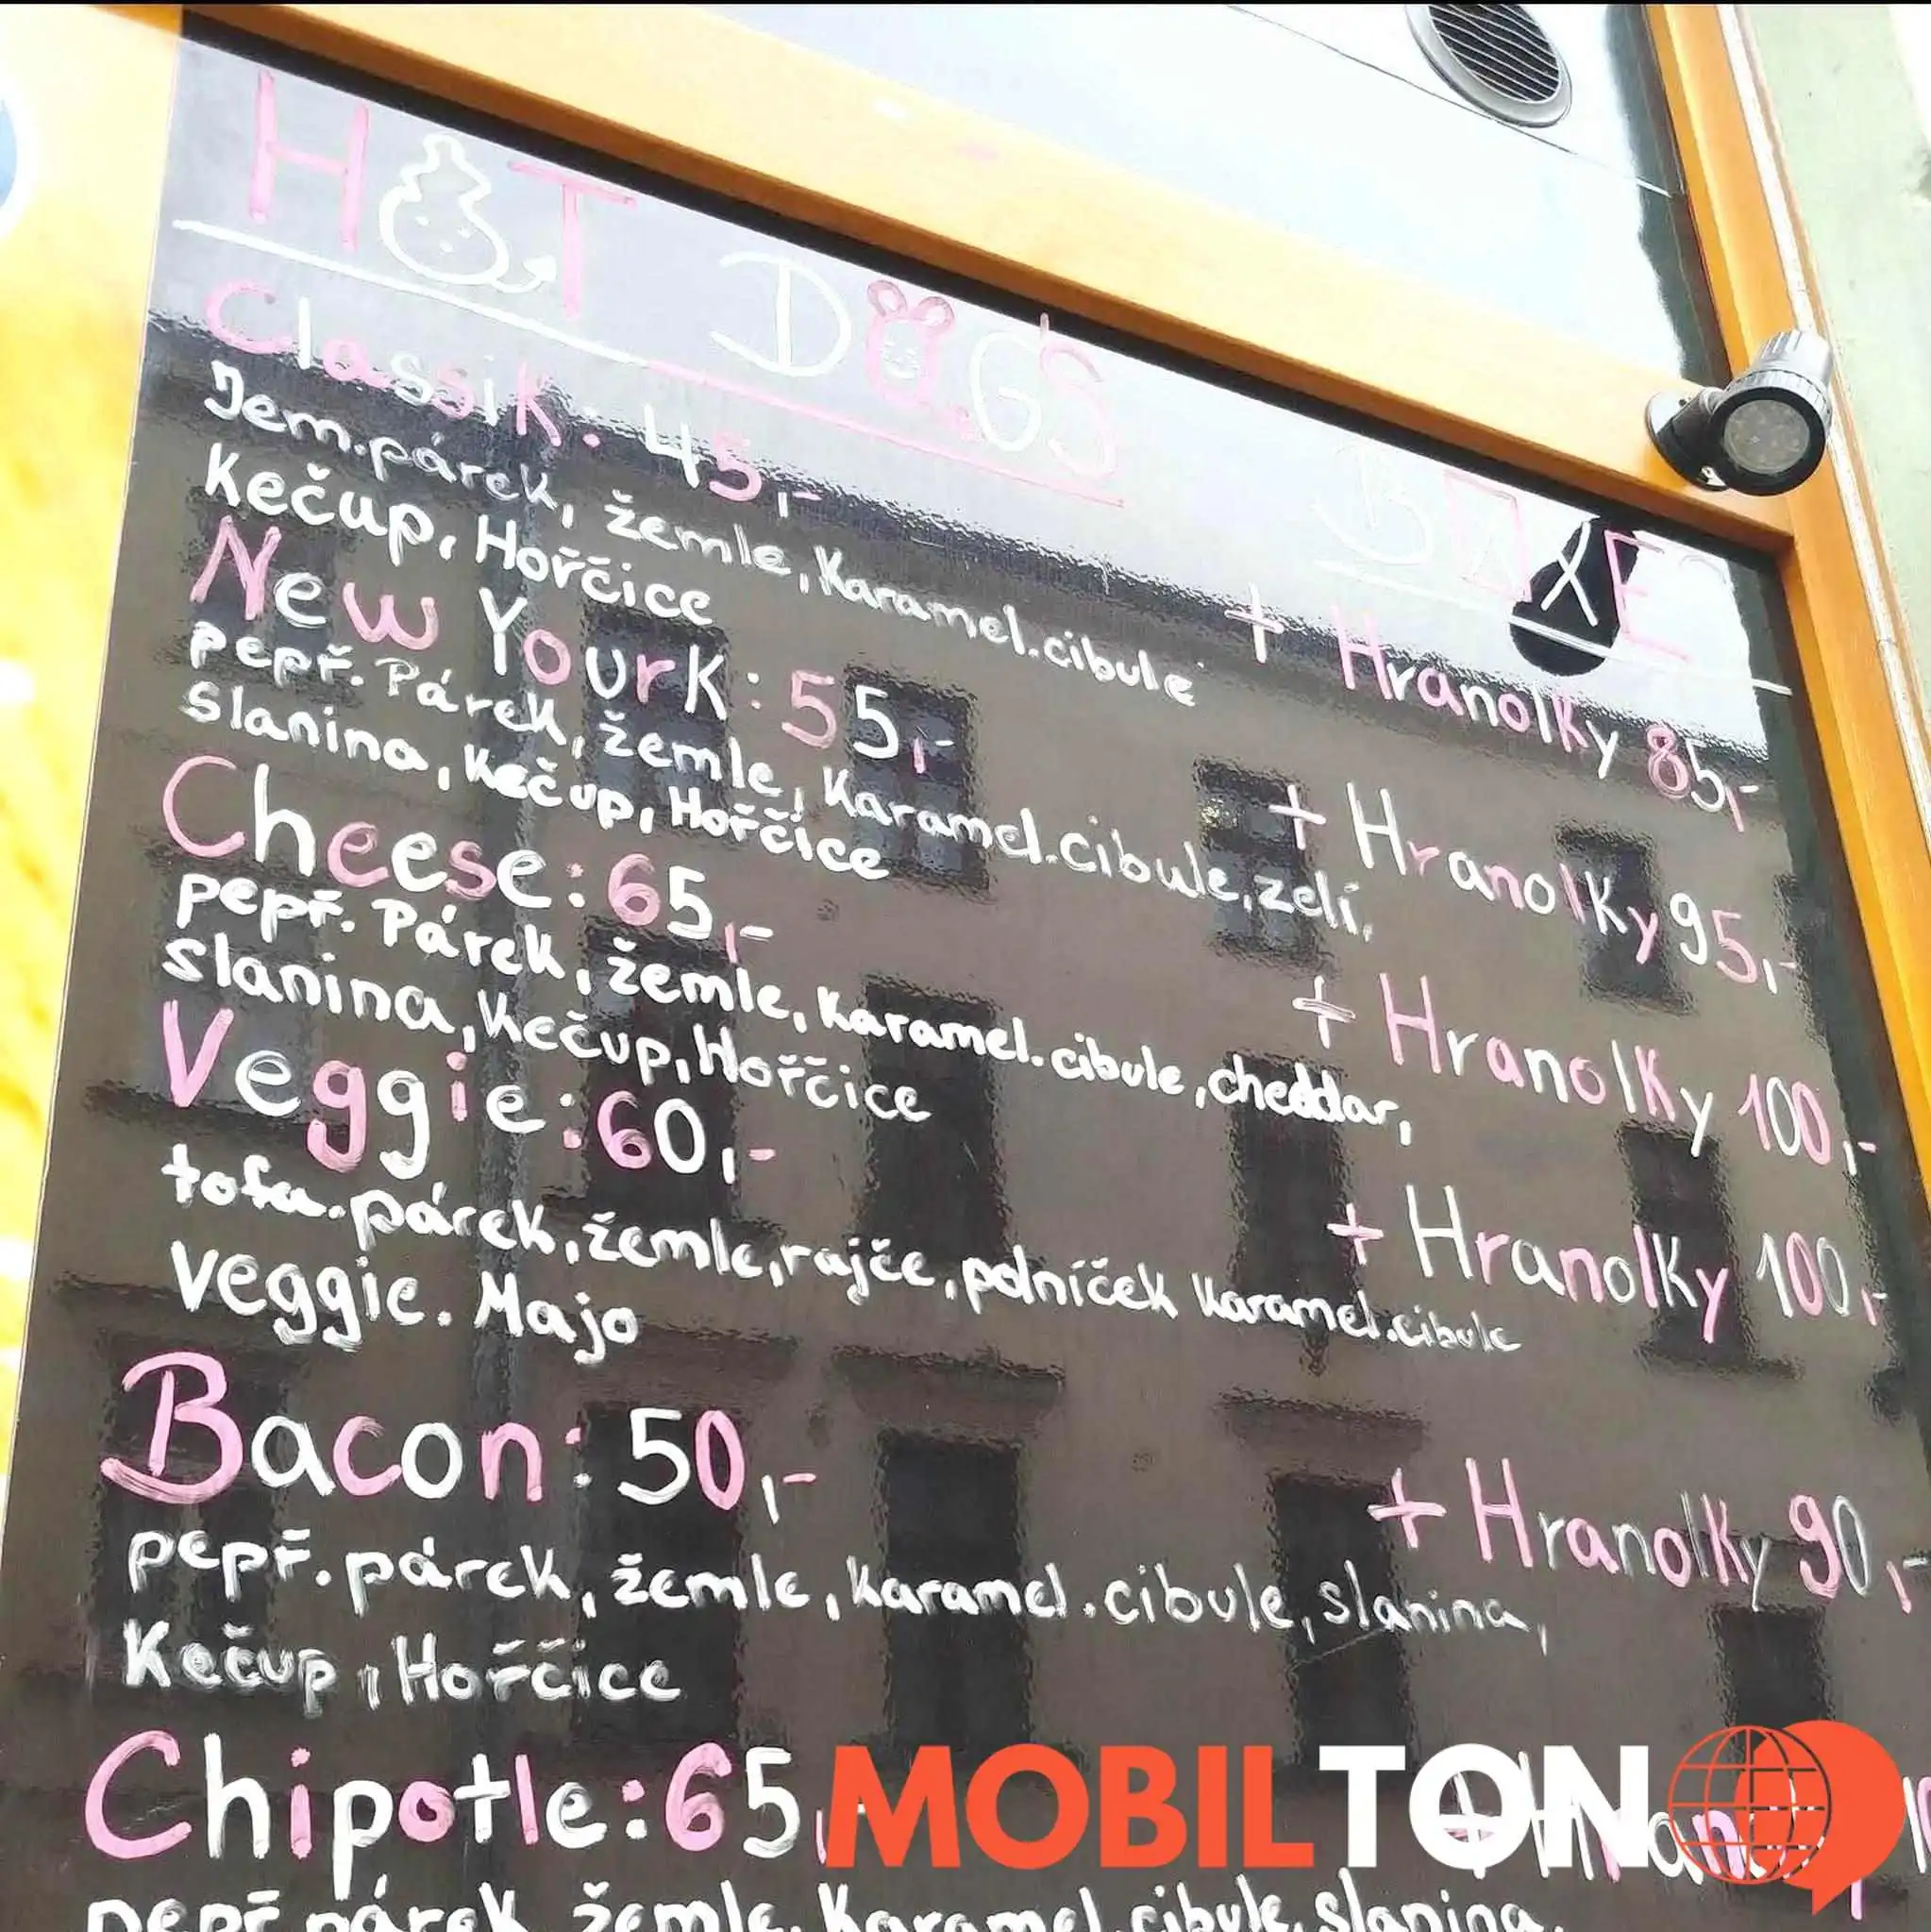 HOT DOGS
BOXE
Classik: 45,-
Jem.párek, žemle, Karamel.cibule
+ Hranolky 85,-
Kečup, Hořčice
New Yourk: 55,-
pepř. Párek, žemle, Karamel.cibule, zelí,
+ Hranolky 95,-
slanina, Kečup, Hořčice
Cheese: 65,-
pepř. Párek, žemle, Karamel.cibule, cheddar,
+ Hranolky 100,-
slanina, Kečup, Hořčice
Veggie: 60,-
tofu.párek, žemle, rajče, polníček Karamel.cibule
+ Hranolky 100,-
Veggie. Majo
Bacon: 50,-
+ Hranolky 90,-
pepř.párek, žemle, karamel.cibule, slanina,
Kečup, Hořčice
Chipotle: 65,-
MOBILTON
pepř párek, žemle, Karamel.cibule, slanina,